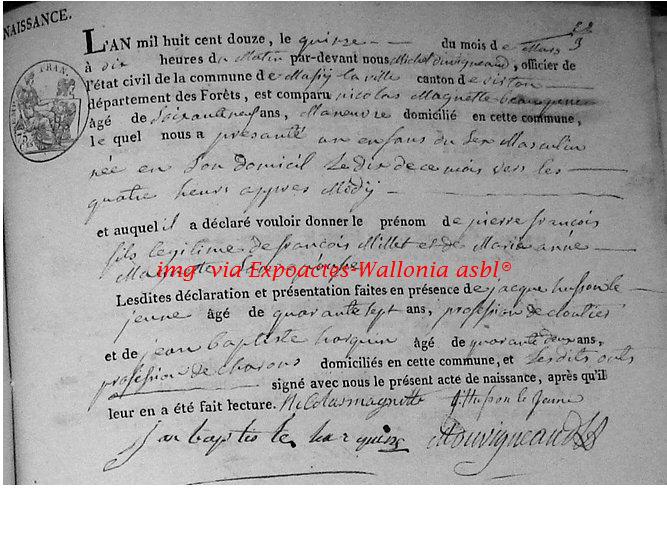 NAISSANCE.
L'AN mil huit cent douze, le quinze du mois de Mars
à dix heures du Matin par-devant nous Michel duvigneaud, officier de
l'état civil de la commune de Mussy la ville canton de virton
département des Forêts, est comparu nicolas Magnette
âgé de soixante ans, Maneuvre domicilié en cette commune,
le quel nous a presanté un enfans du Sex Masculin
née en Son domicil Le dix de ce mois vers les
quatre heurs appres Midÿ
et auquel il a déclaré vouloir donner le prénom de pierre françois
fils legitime de françois Millet et de Marie anne
Magnette Son épouse
img via Expoactes-Wallonia asbl©
Lesdites déclaration et présentation faites en présence de jacque husson le
jeune âgé de quarante sept ans, profession de cloutier
et de jean baptiste horquin âgé de quarante deux ans,
profession de charons domiciliés en cette commune, et Lesdits onts
signé avec nous le présent acte de naissance, après qu'il
leur en a été fait lecture. Nicolas magnette J. husson le Jeune
jan baptiste Duvigneaud